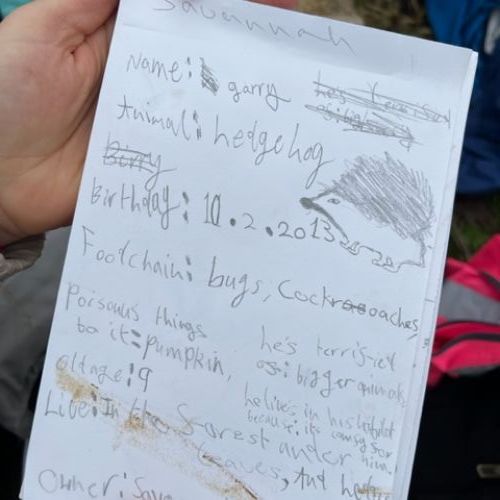 Savannah
Name: garry
Animal: hedgehog
Birthday: 11.2.2013
Foodchain: bugs, Cockroaches,
Poisonus things
to it = pumpkin,
he's terrisied
of: bigger animals
oltage: 9
he lives in his
because: its comfy for
him.
Live: In the forest under
leaves, And
Owner: Sava